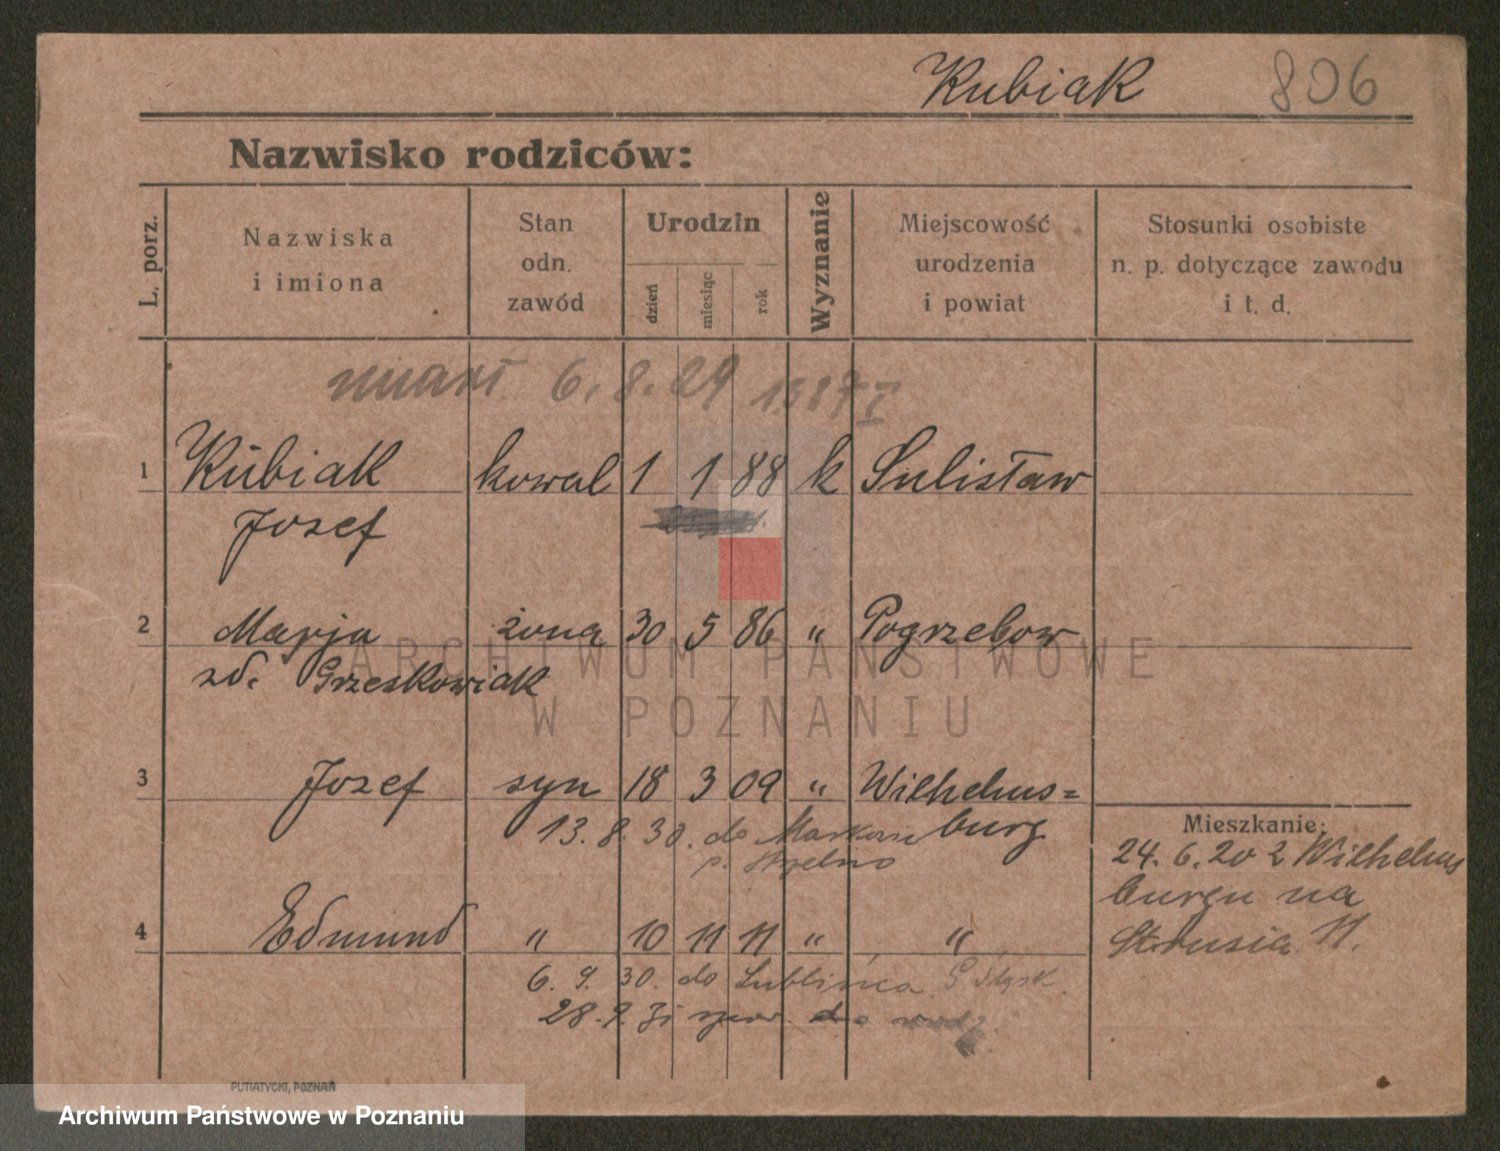 Kubiak 806
Nazwisko rodziców:
L. porz.
Nazwiska
i imiona
Stan
odn.
zawód
Urodzin
dzień
miesiąc
rok
Wyznanie
Miejscowość
urodzenia
i powiat
Stosunki osobiste
n. p. dotyczące zawodu
i t. d.
umarł 6.8.29
1 Kubiak kowal 1 1 88 k Sulisław
Józef
2 Marja żona 30 5 86 " Pogrzebow
zd. Grzeskowiak
3 Józef syn 18 3 09 " Wilhelms=
burg
13.8.30. do
p. Strzelno
4 Edmund " 10 11 11 " "
6.9.30. do Lublińca G Śląsk.
28.9.31
Mieszkanie:
24.6.20 z Wilhelms
burgu na
Strusia 11.
PUTIATYCKI, POZNAŃ
ARCHIWUM PAŃSTWOWE
W POZNANIU
Archiwum Państwowe w Poznaniu